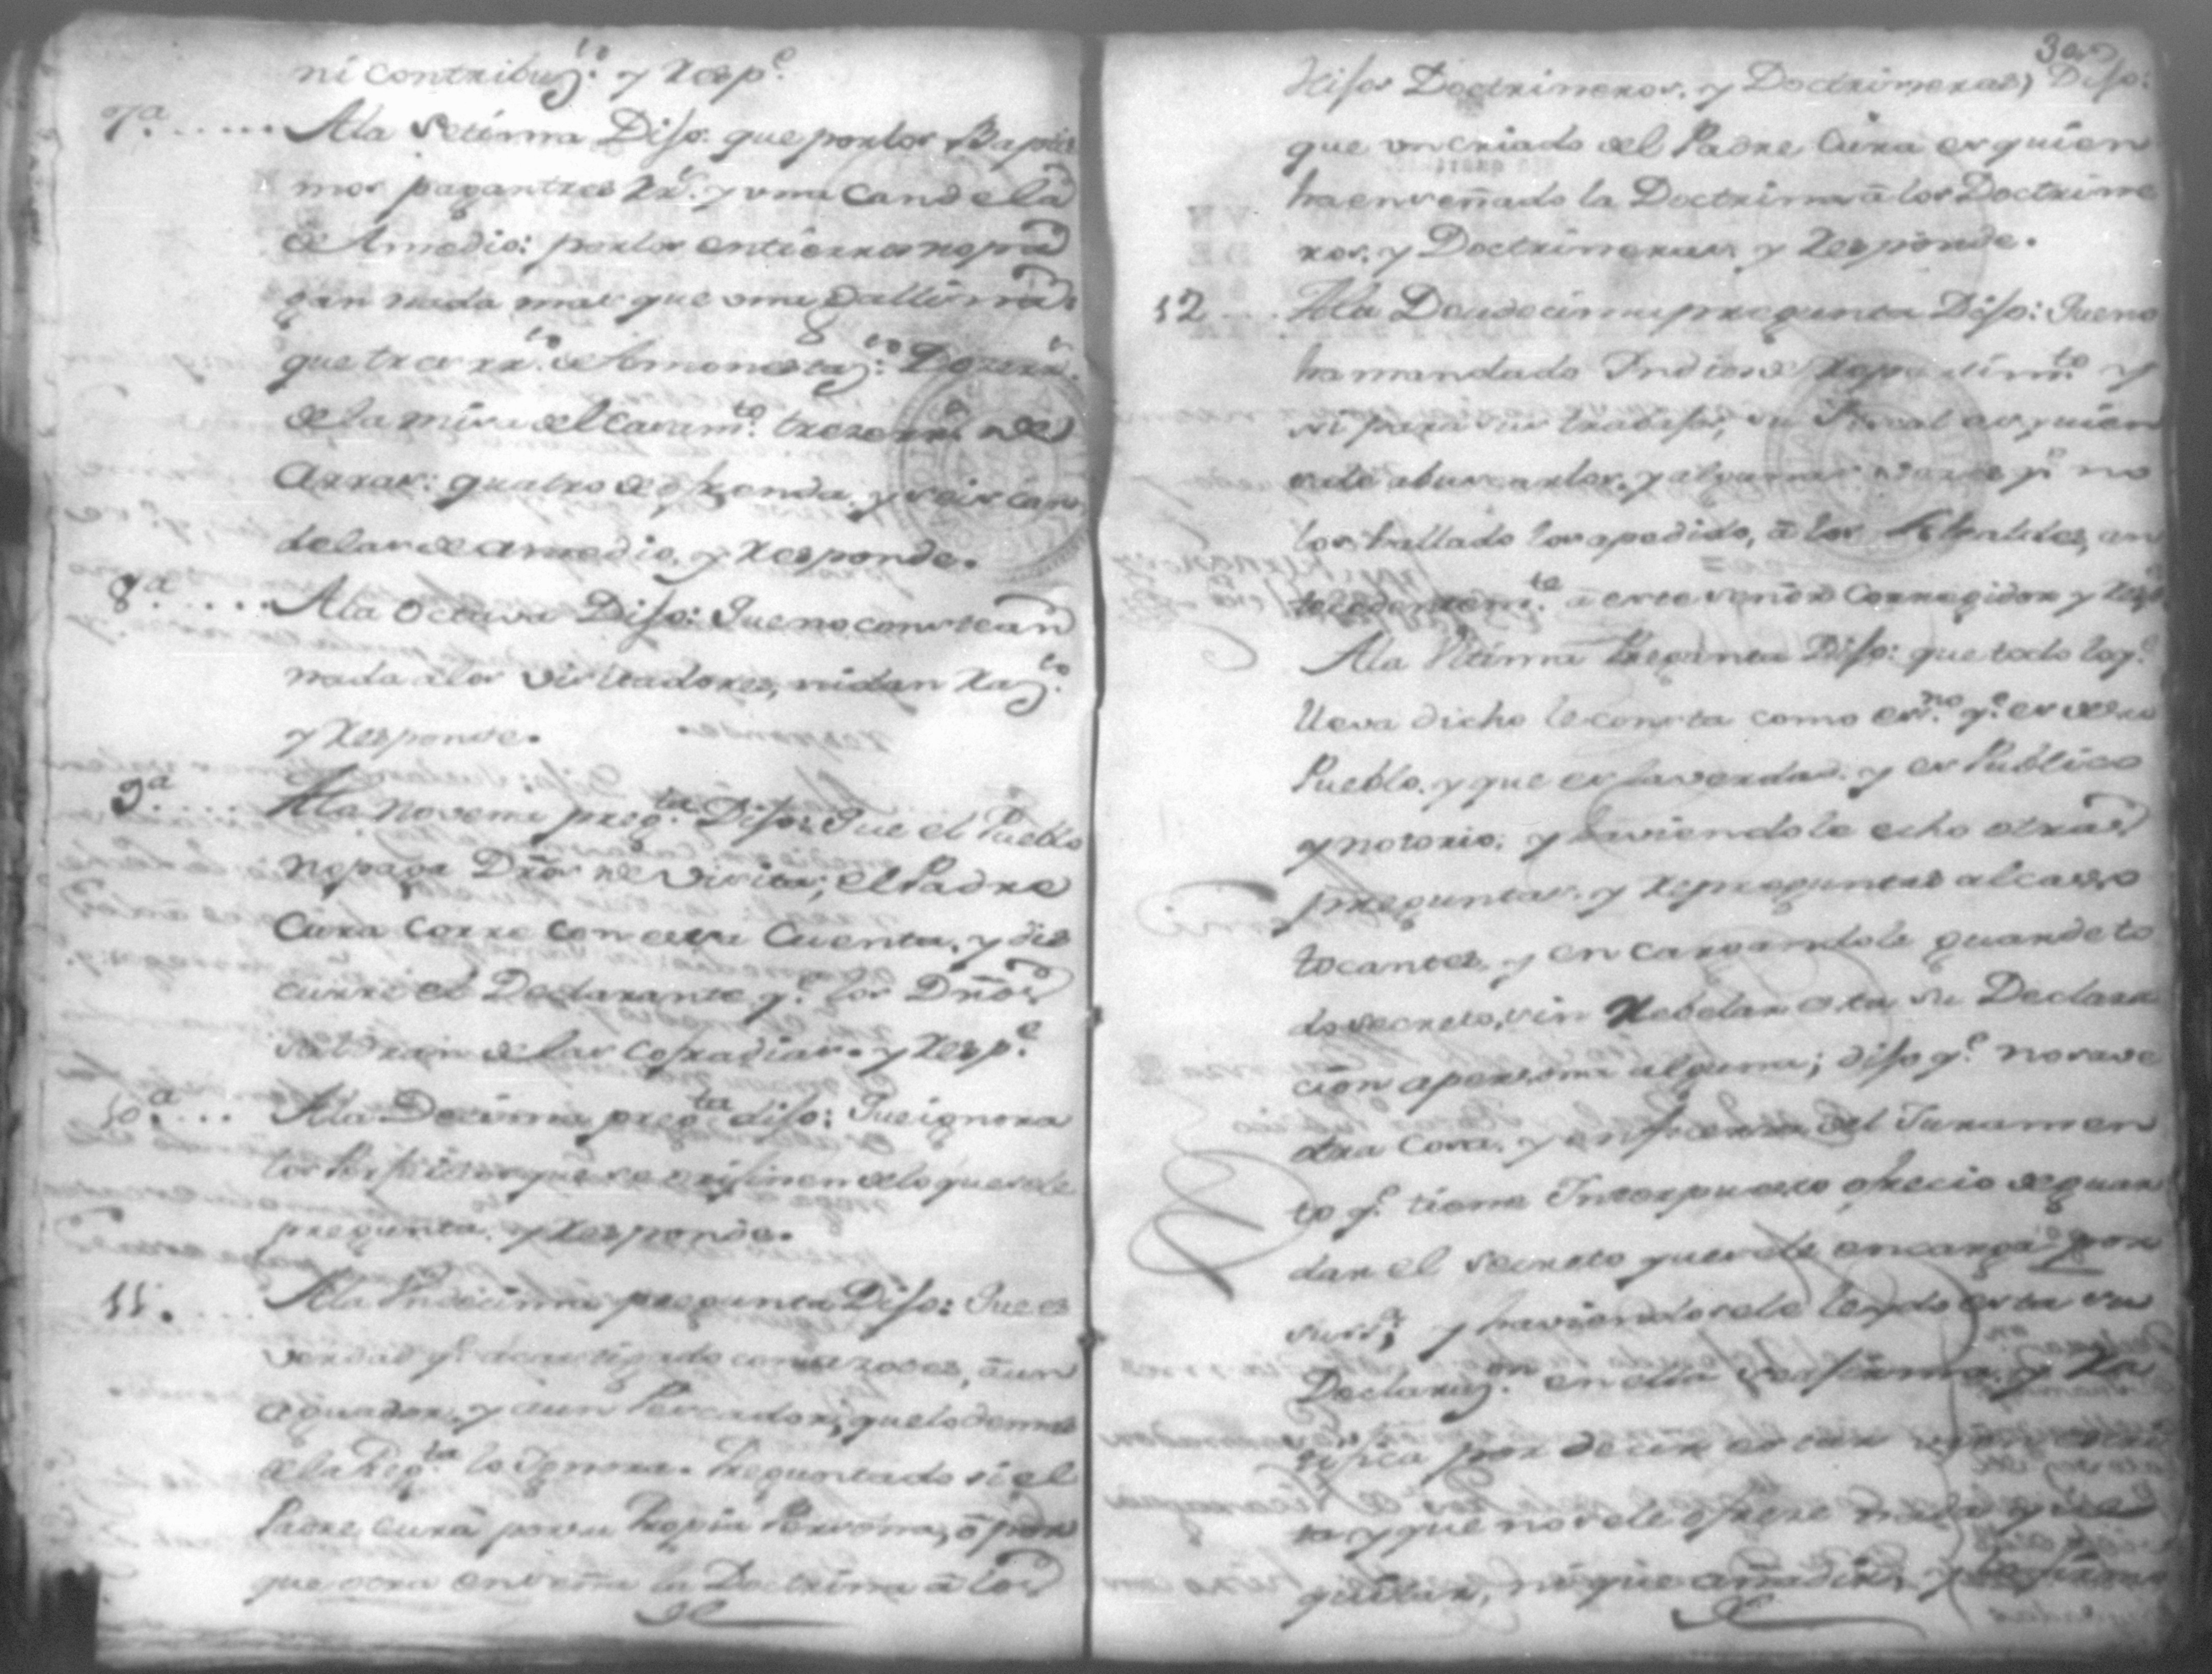 ni contribuz.to y Resp.e
7.a ..... A la Setima Diso: que por los Baptis
mos pagan tres Rr.s y una Candela
de Amedio: por los entierros no pa
gan nada mas que una gallina:
que tres rr.s de Amonestaz.to: Doze rr.s
de la misa del Casam.to treze rr.s de
Arras: quatro de ofrenda, y seis can
delas de amedio, y Responde.
8.a ..... A la Octava Diso: Que no constean
nada a los Visitadores, ni dan Raz.to
y Responde.
9.a .... A la Novena preg.ta Diso: Que el Pueblo
no paga Dños de Visita; el Padre
Cura corre con esa Cuenta, y dis
curre el Declarante q.e los Dños
saldran de las Cofradias. y Resp.e
10.a ... A la Decima preg.ta diso: Que ignora
los que se originen de lo que se le
pregunta. y Responde.
11. .... A la Undecima pregunta Diso: Que es
verdad q.e a castigado con azotes, â un
aguador, y a un Pescador; que lo demas
de la Preg.ta lo Ignora. Preguntado si el
Padre Cura por su Propia Persona, ô por
que otra enseña la Doctrina â los
30
Hisos Doctrineros, y Doctrineras, Diso:
que un criado del Padre Cura es quien
ha enseñado la Doctrina â los Doctrine
ros, y Doctrineras y Responde.
12 ... A la Duodecima pregunta Diso: Que no
ha mandado Indios de Repartim.to y
si para sus trabasos, su Fiscal es quien
sale a buscarlos, y algunas veces q.e no
los hallado los a pedido, â los Alcaldes, an
tecedentem.te â este señor Corregidor y Resp.e
A la Ultima Pregunta Diso: que todo lo q.e
lleva dicho le consta como es.no q.e es de su
Pueblo, y que es la verdad, y es Publico
y notorio; y haviendole echo otras
preguntas, y repreguntas al caso
tocantes, y encargandole guarde to
do secreto, sin Rebelar esta su Declara
cion a persona alguna; diso q.e no save
otra Cosa, y en fuerza del Juramen
to q.e tiene Interpuesto, ofrecio de guar
dar el secreto que se le encarga por
su s.a; y haviendosele leydo esta su
Declaraz.on en ella se afirma, y Ra
tifica por decir estar escri
ta y que no se le ofrece nada que le
quitar, ni que añadir, y